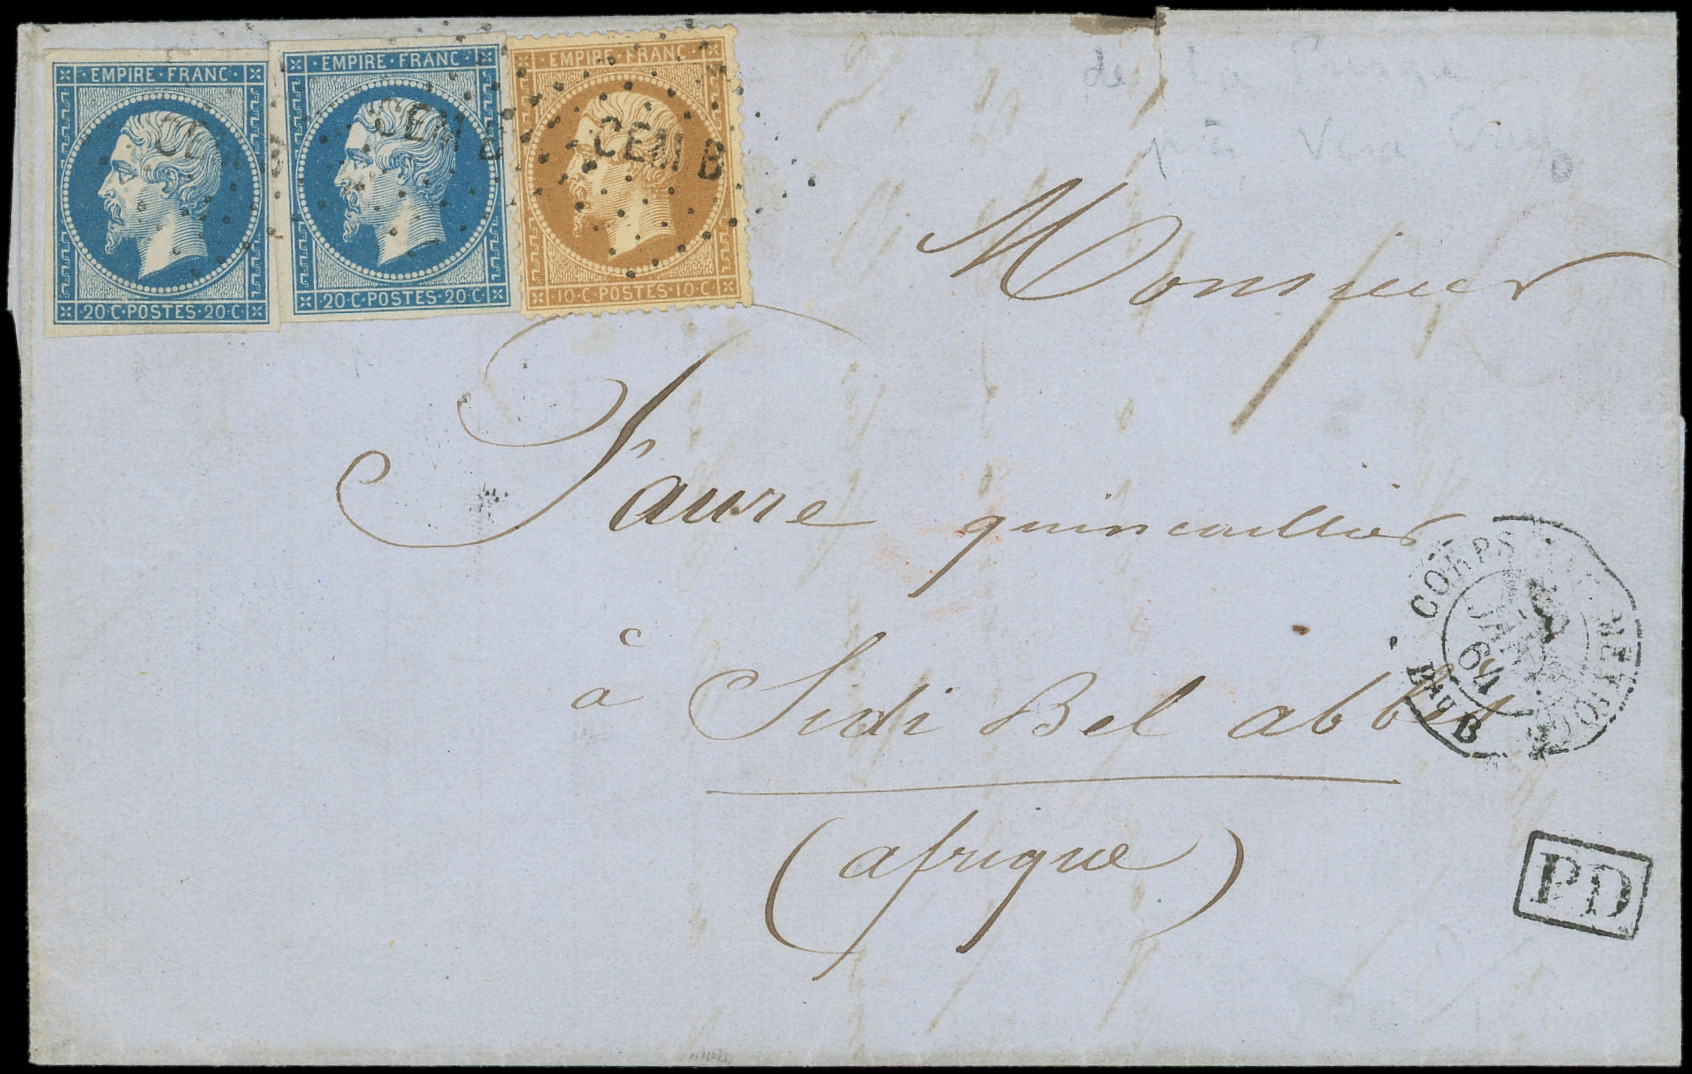 EMPIRE · FRANC ·
20 · C · POSTES · 20 · C ·
EMPIRE · FRANC ·
20 · C · POSTES · 20 · C ·
EMPIRE · FRANC ·
10 · C · POSTES · 10 · C ·
CEM B
CEM B
de la
près Vera Cruz
Monsieur
Faure quincaillier
à Sidi Bel abbes
(afrique)
CORPS
JANV
64
Bau B
PD